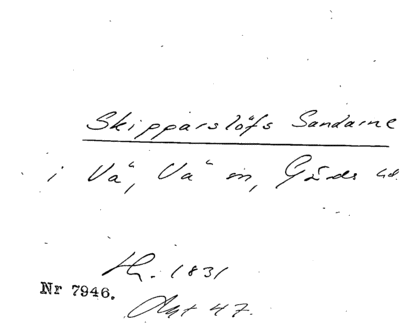 Skipparslöfs Sandarne
i Vä, Vä sn, Gärds hd.
Th. 1831
Nr 7946.
Akt 47.